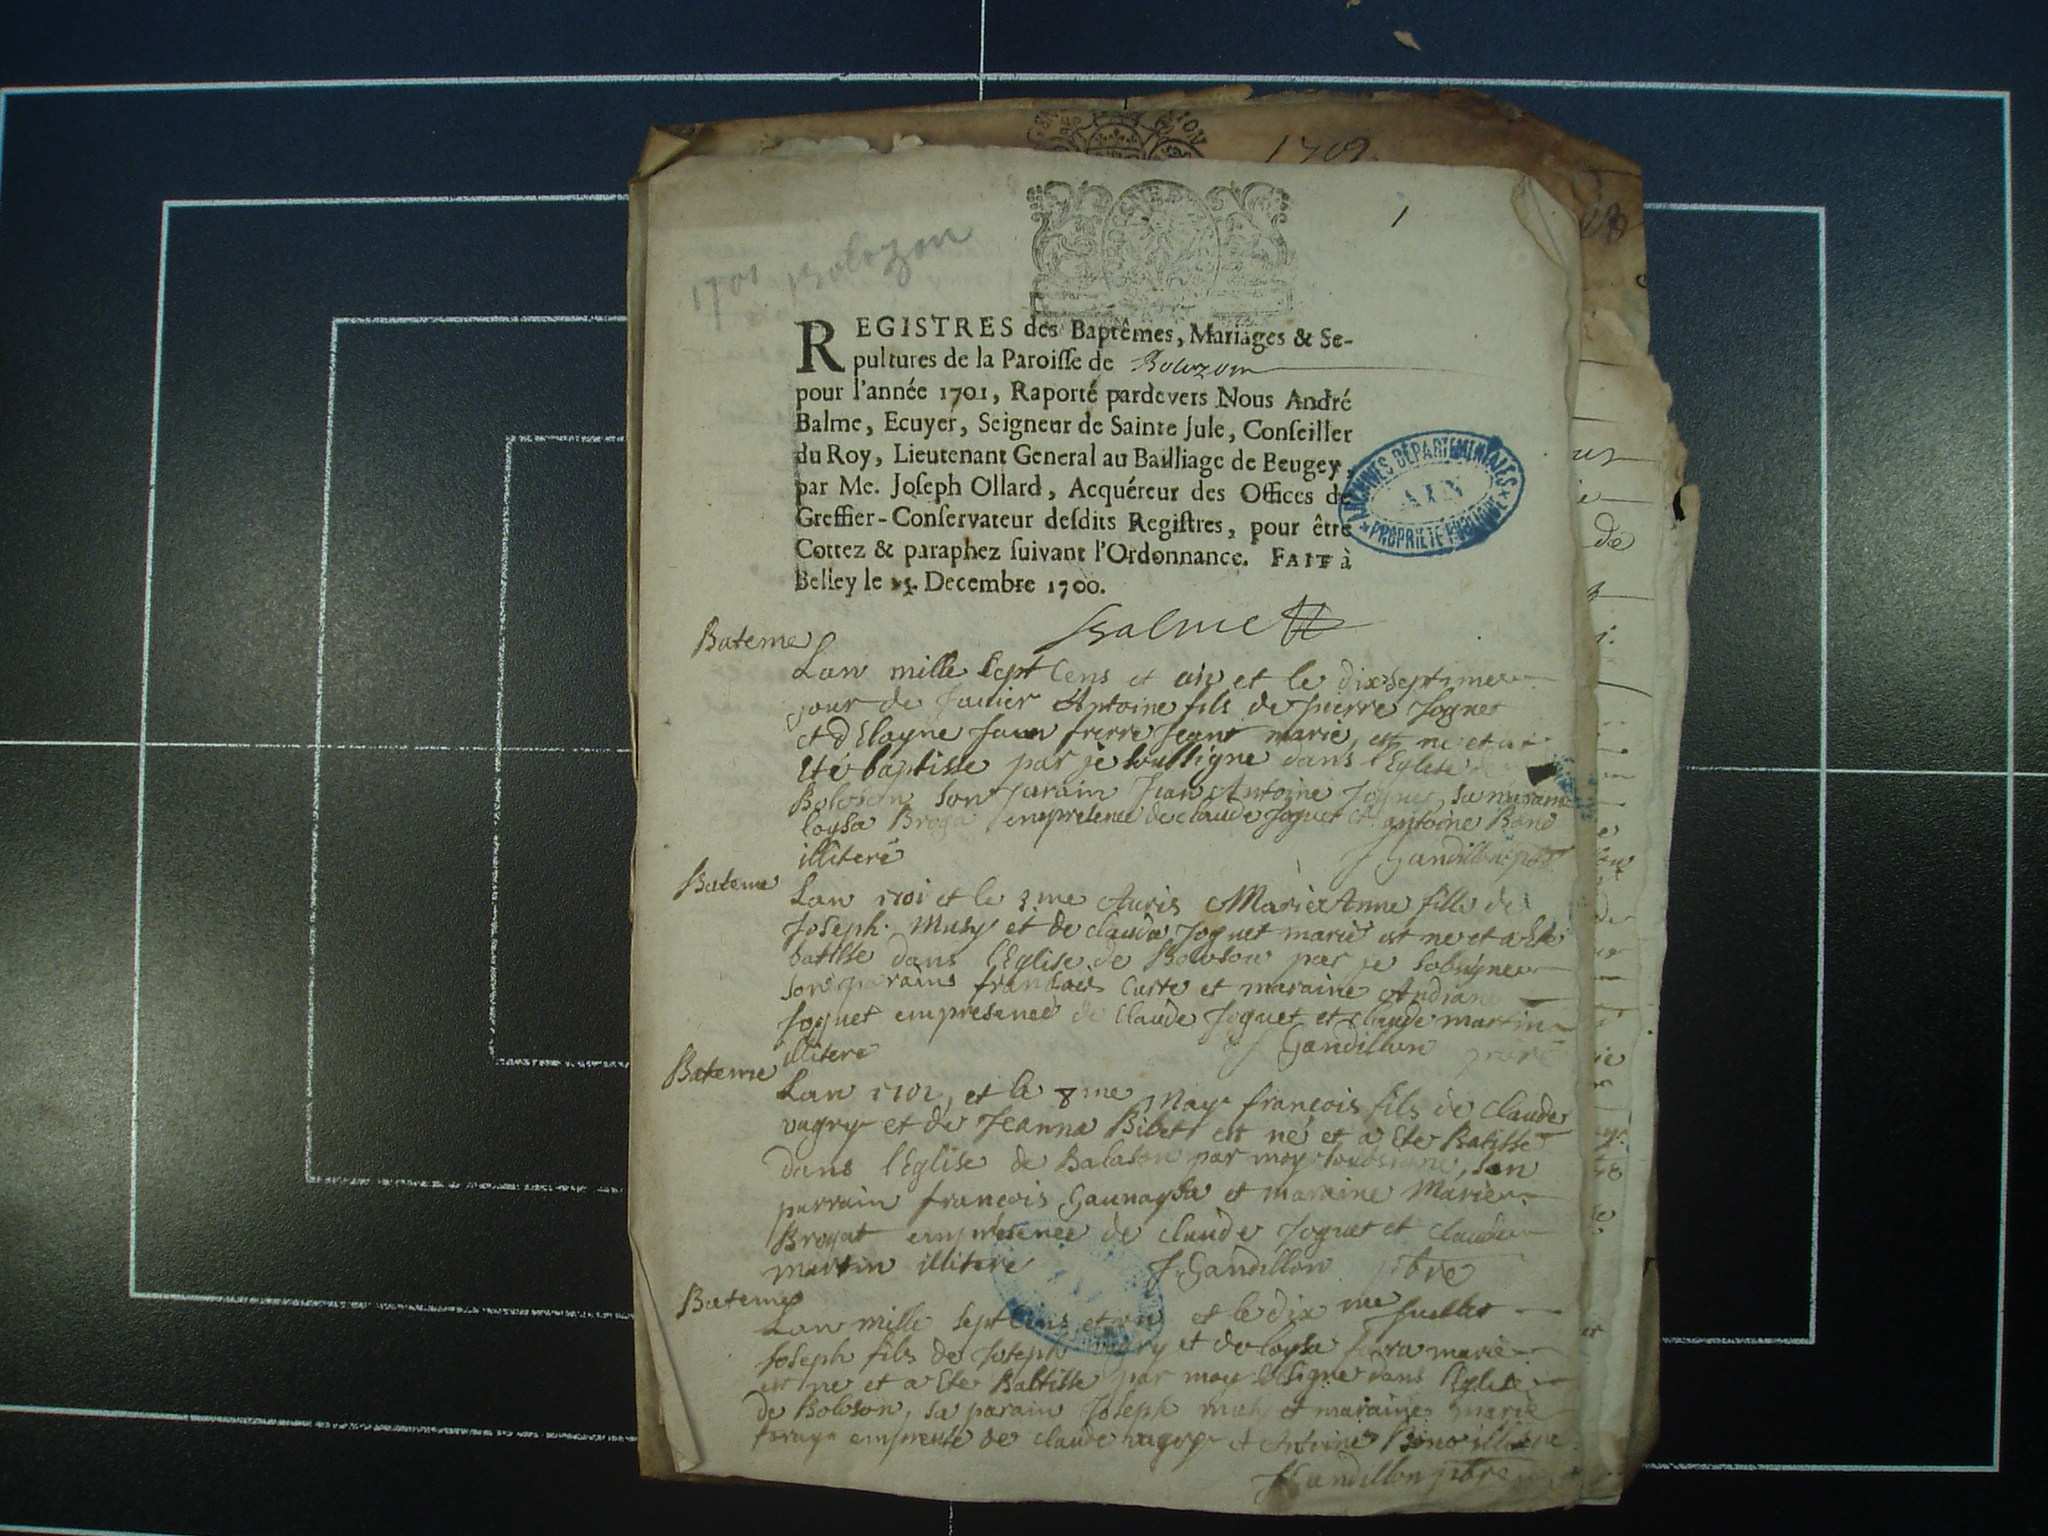 1709
1
1701 Bolozon
REGISTRES des Baptêmes, Mariages & Se-
pultures de la Paroisse de Bolozon
pour l'année 1701, Raporté pardevers Nous André
Balme, Ecuyer, Seigneur de Sainte Jule, Conseiller
du Roy, Lieutenant General au Bailliage de Beugey,
par Me. Joseph Ollard, Acquéreur des Offices de
Greffier-Conservateur desdits Registres, pour être
Cottez & paraphez suivant l'Ordonnance. FAIT à
Belley le 15. Decembre 1700.
ARCHIVES DÉPARTEMENTALES
AIN
PROPRIÉTÉ PUBLIQUE
Balme
Bateme
Lan mille sept cens et un et le dixseptime
jour de Antoine fils de pierre Joguet
et marie, est ne et a
été baptisse par je soussigne dans l'Eglise de
Boloson son parain Jean Antoine Joguet, sa maraine
loysa en presence de claude Joguet et antoine Bond
illiteré
Gandillon pbre
Bateme
Lan 1701 et le 3me Auris Marie Anne fille de
Joseph Musy et de claudа Joguet marié est ne et a Ete
batisse dans l'Eglise de Boloson par je
son parains francois et maraine Andriane
Joguet empresence de Claude Joguet et claude martin
illitere
J Gandillon prbre
Bateme
Lan 1701, et le 8me May francois fils de Claude
vugry et de Jeanna Bibet est né et a Ete Batisse
dans l'Eglise de Balason par moy soubsigné, son
parrain francois et maraine Marie
Broyat empresence de claude Joguet et claude
martin illitere J Gandillon pbre
Bateme
Lan mille sept cens et un et le dix me Juillet
Joseph fils de Joseph et de loysa marie
est ne et a Ete Battisse par moy dans l'Eglise
de Boloson, sa parain Joseph et maraine marie
de claude vugry et Antoine Bond illitere
J Gandillon pbre